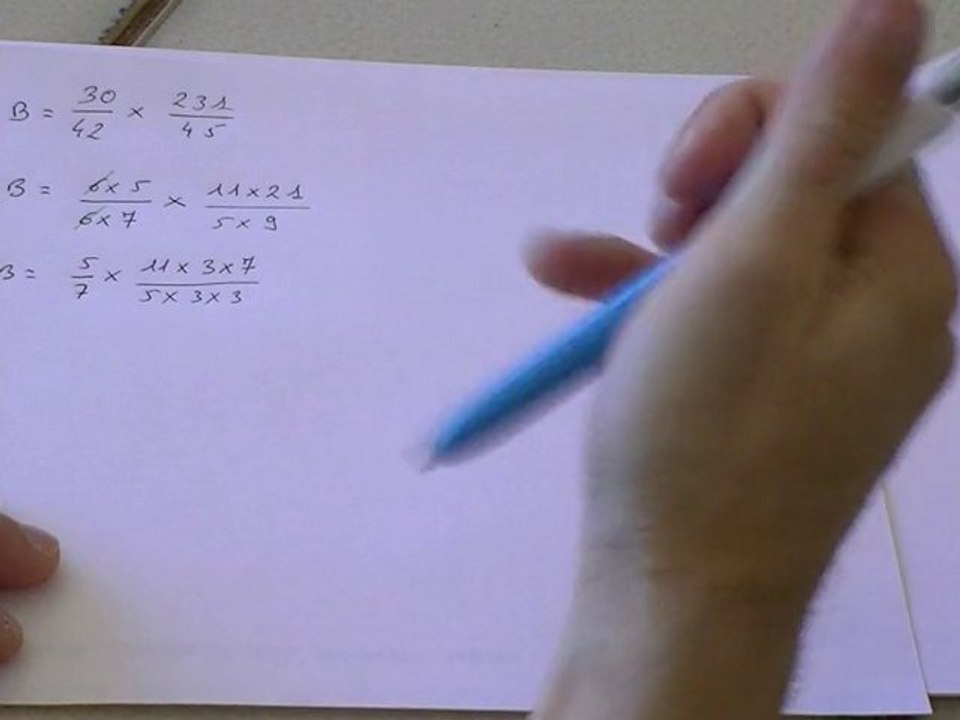 B = 30/42 × 231/45
B = 6×5/6×7 × 11×21/5×9
B = 5/7 × 11×3×7/5×3×3